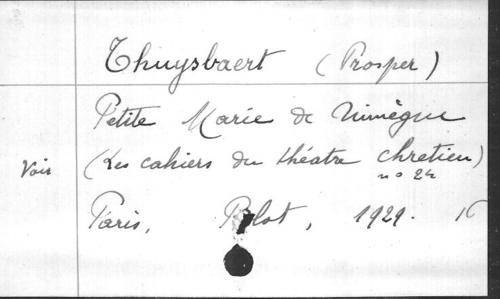 Thuysbaert (Prosper)
Petite Marie de Nimègue
Voir (Les cahiers du théatre chretien)
no 24
Paris, Blot, 1929. 16